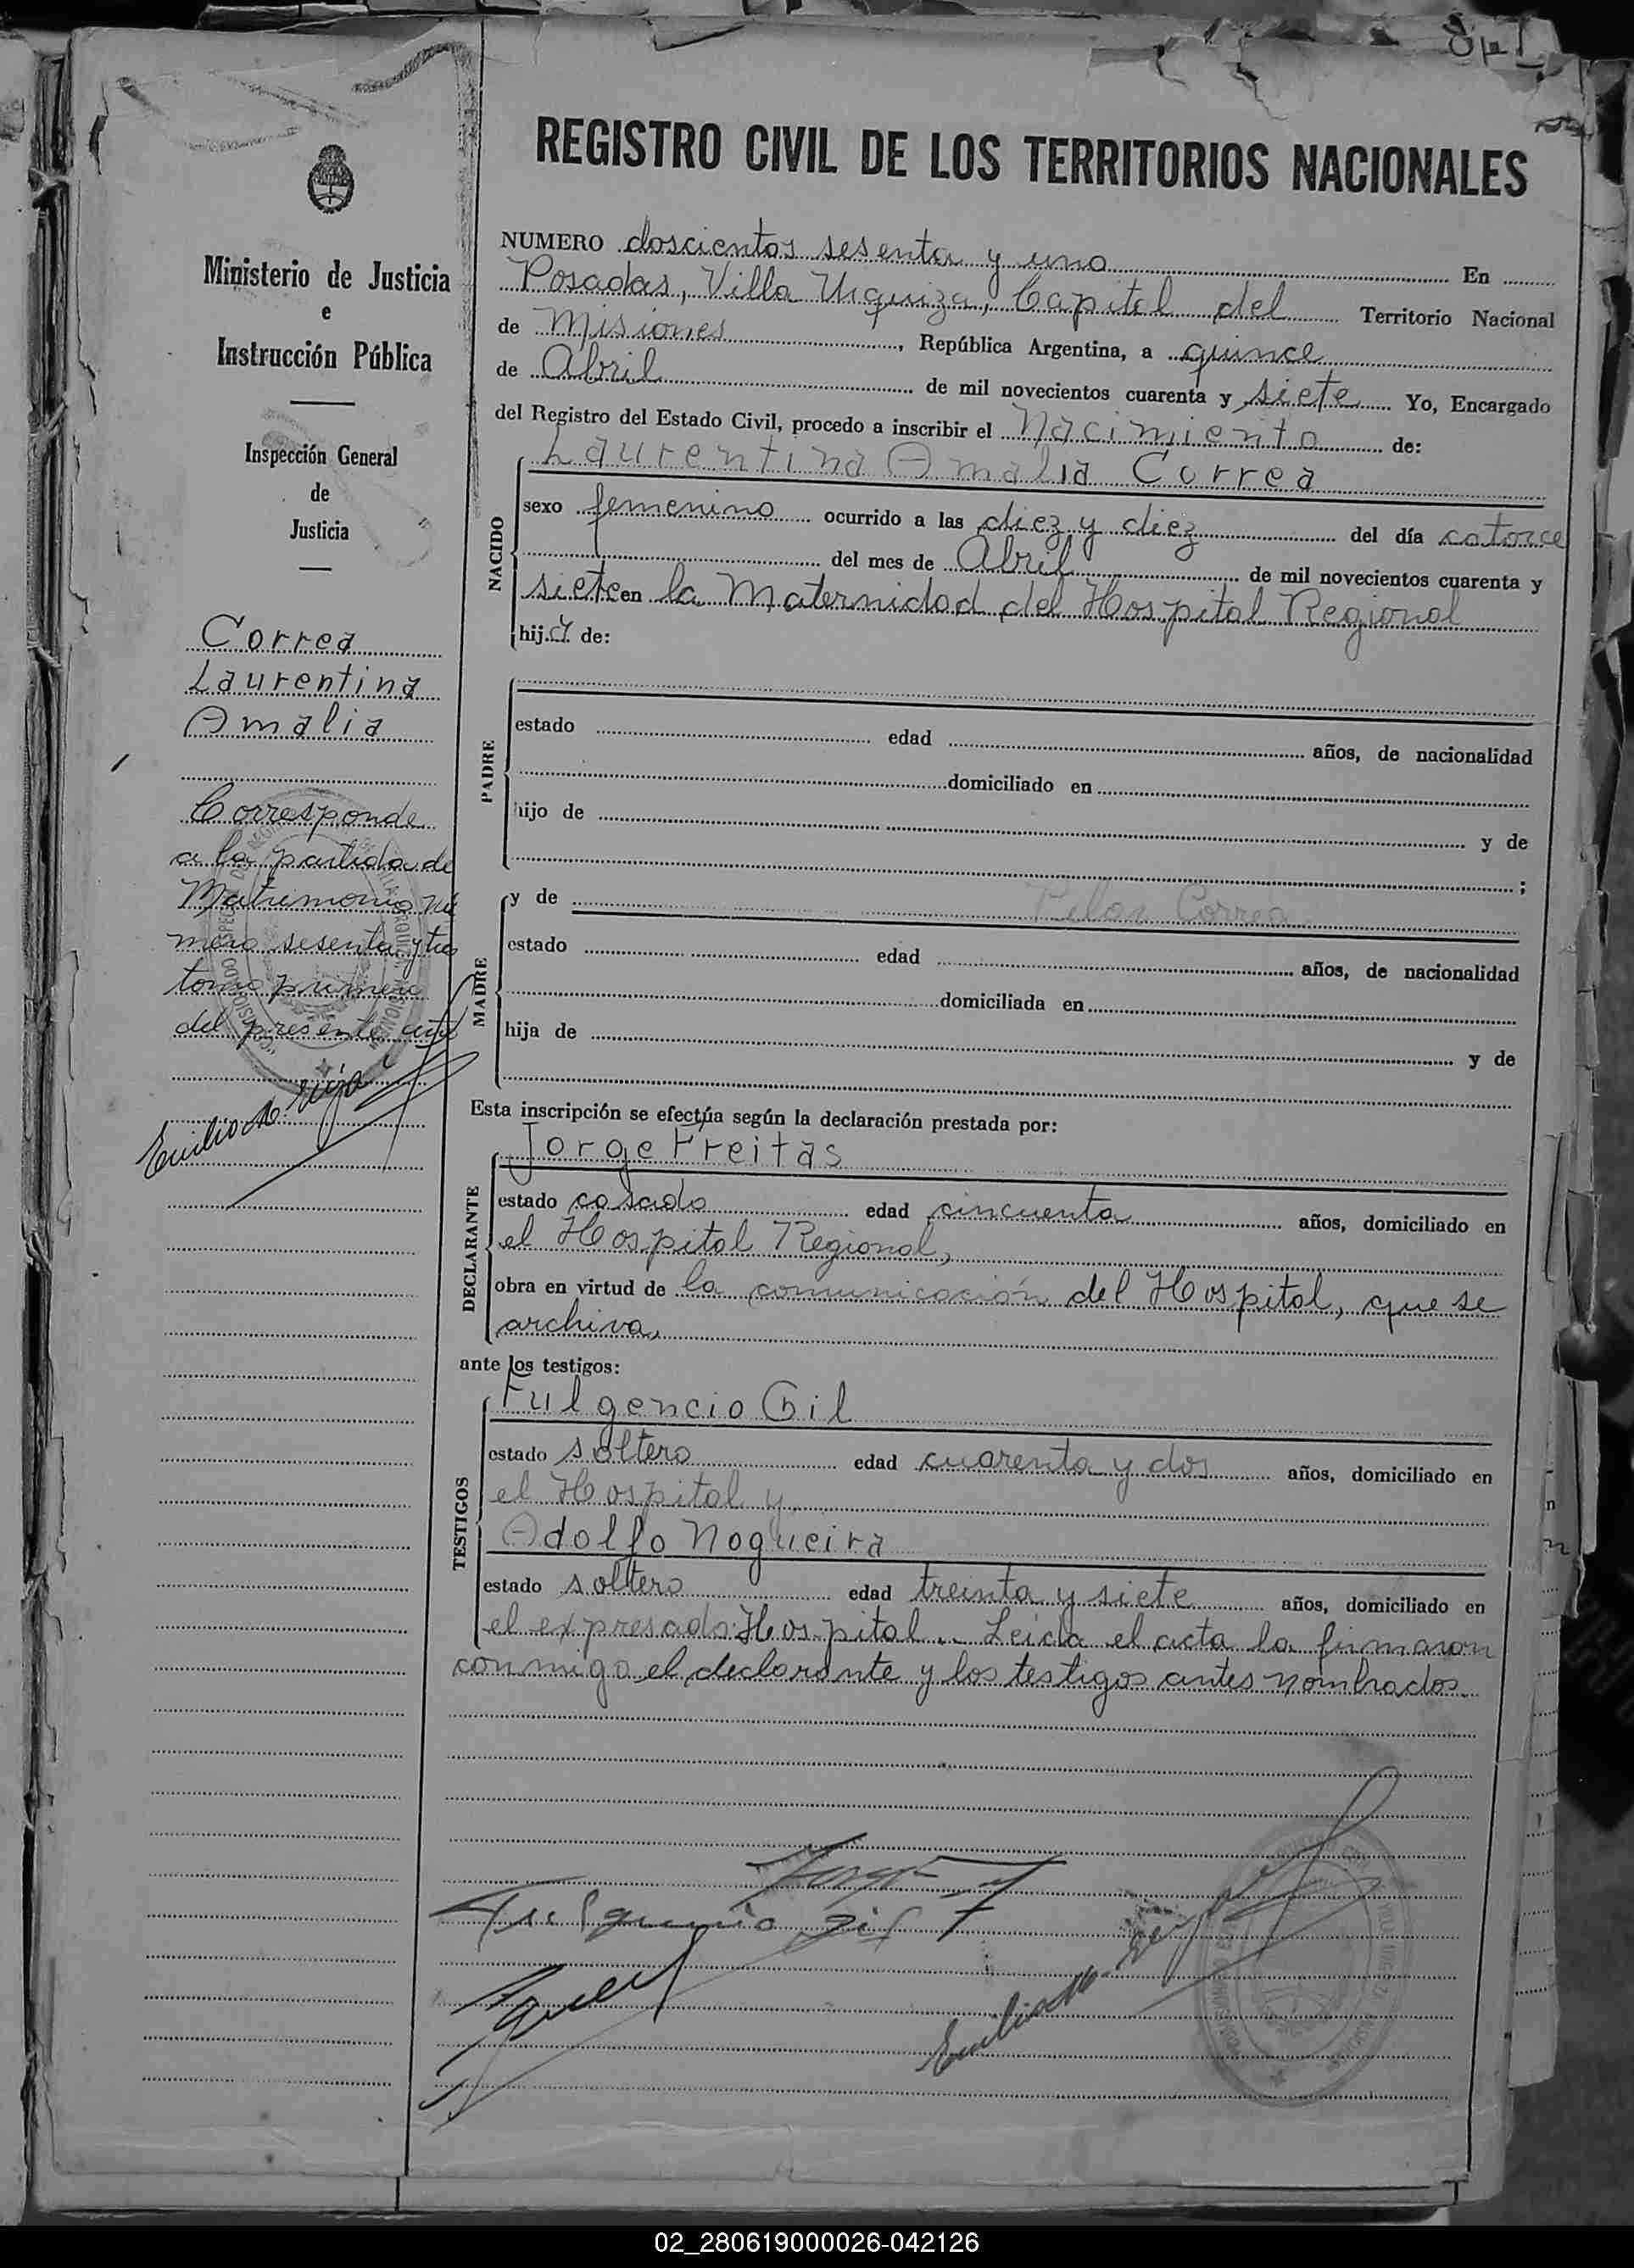 REGISTRO CIVIL DE LOS TERRITORIOS NACIONALES
Ministerio de Justicia
e
Instrucción Pública
Inspección General
de
Justicia
Correa
Laurentina
Amalia
Corresponde
a la partida de
Matrimonio nú
mero sesenta y tres
tomo primero
del presente
NUMERO doscientos sesenta y uno En
Posadas, Villa Urquiza, Capital del Territorio Nacional
de Misiones, República Argentina, a quince
de Abril de mil novecientos cuarenta y siete Yo, Encargado
del Registro del Estado Civil, procedo a inscribir el Nacimiento de:
NACIDO
Laurentina Amalia Correa
sexo femenino ocurrido a las diez y diez del día catorce
del mes de Abril de mil novecientos cuarenta y
siete en la Maternidad del Hospital Regional
hija de:
PADRE
estado edad años, de nacionalidad
domiciliado en
hijo de y de
;
MADRE
y de Pilar Correa
estado edad años, de nacionalidad
domiciliada en
hija de y de
Esta inscripción se efectúa según la declaración prestada por:
DECLARANTE
Jorge Freitas
estado casado edad cincuenta años, domiciliado en
el Hospital Regional,
obra en virtud de la comunicación del Hospital, que se
archiva,
ante los testigos:
TESTIGOS
Fulgencio Gil
estado soltero edad cuarenta y dos años, domiciliado en
el Hospital y
Adolfo Nogueira
estado soltero edad treinta y siete años, domiciliado en
el expresado Hospital.. Leída el acta la firmaron
conmigo el declarante y los testigos antes nombrados.
Fulgencio Gil
02_280619000026-042126